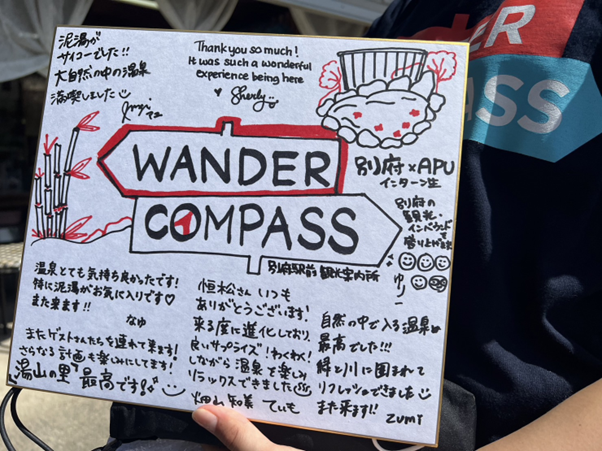 泥湯が
サイコーでした!!
大自然の中の温泉
満喫しました
Thank you so much!
It was such a wonderful
experience being here
Sherly
WANDER
COMPASS
別府駅前 観光案内所
別府×APU
インターン生
別府の
観光・
インバウンドを
盛り上げます
ゆり
温泉とても気持ち良かったです!
特に泥湯がお気に入りです♡
また来ます!!
なゆ
またゲストさんたちを連れて来ます!
さらなる計画も楽しみにしてます!
湯山の里 最高です!
恒松さん いつも
ありがとうございます!
来る度に進化しており、
良いサプライズ!わくわく!
しながら温泉で楽しみ
リラックスできました
畑山 知美 てぃも
自然の中で入る温泉は
最高でした!!!
緑と川に囲まれて
リフレッシュできました
また来ます!!
ZUMI
ER
PASS